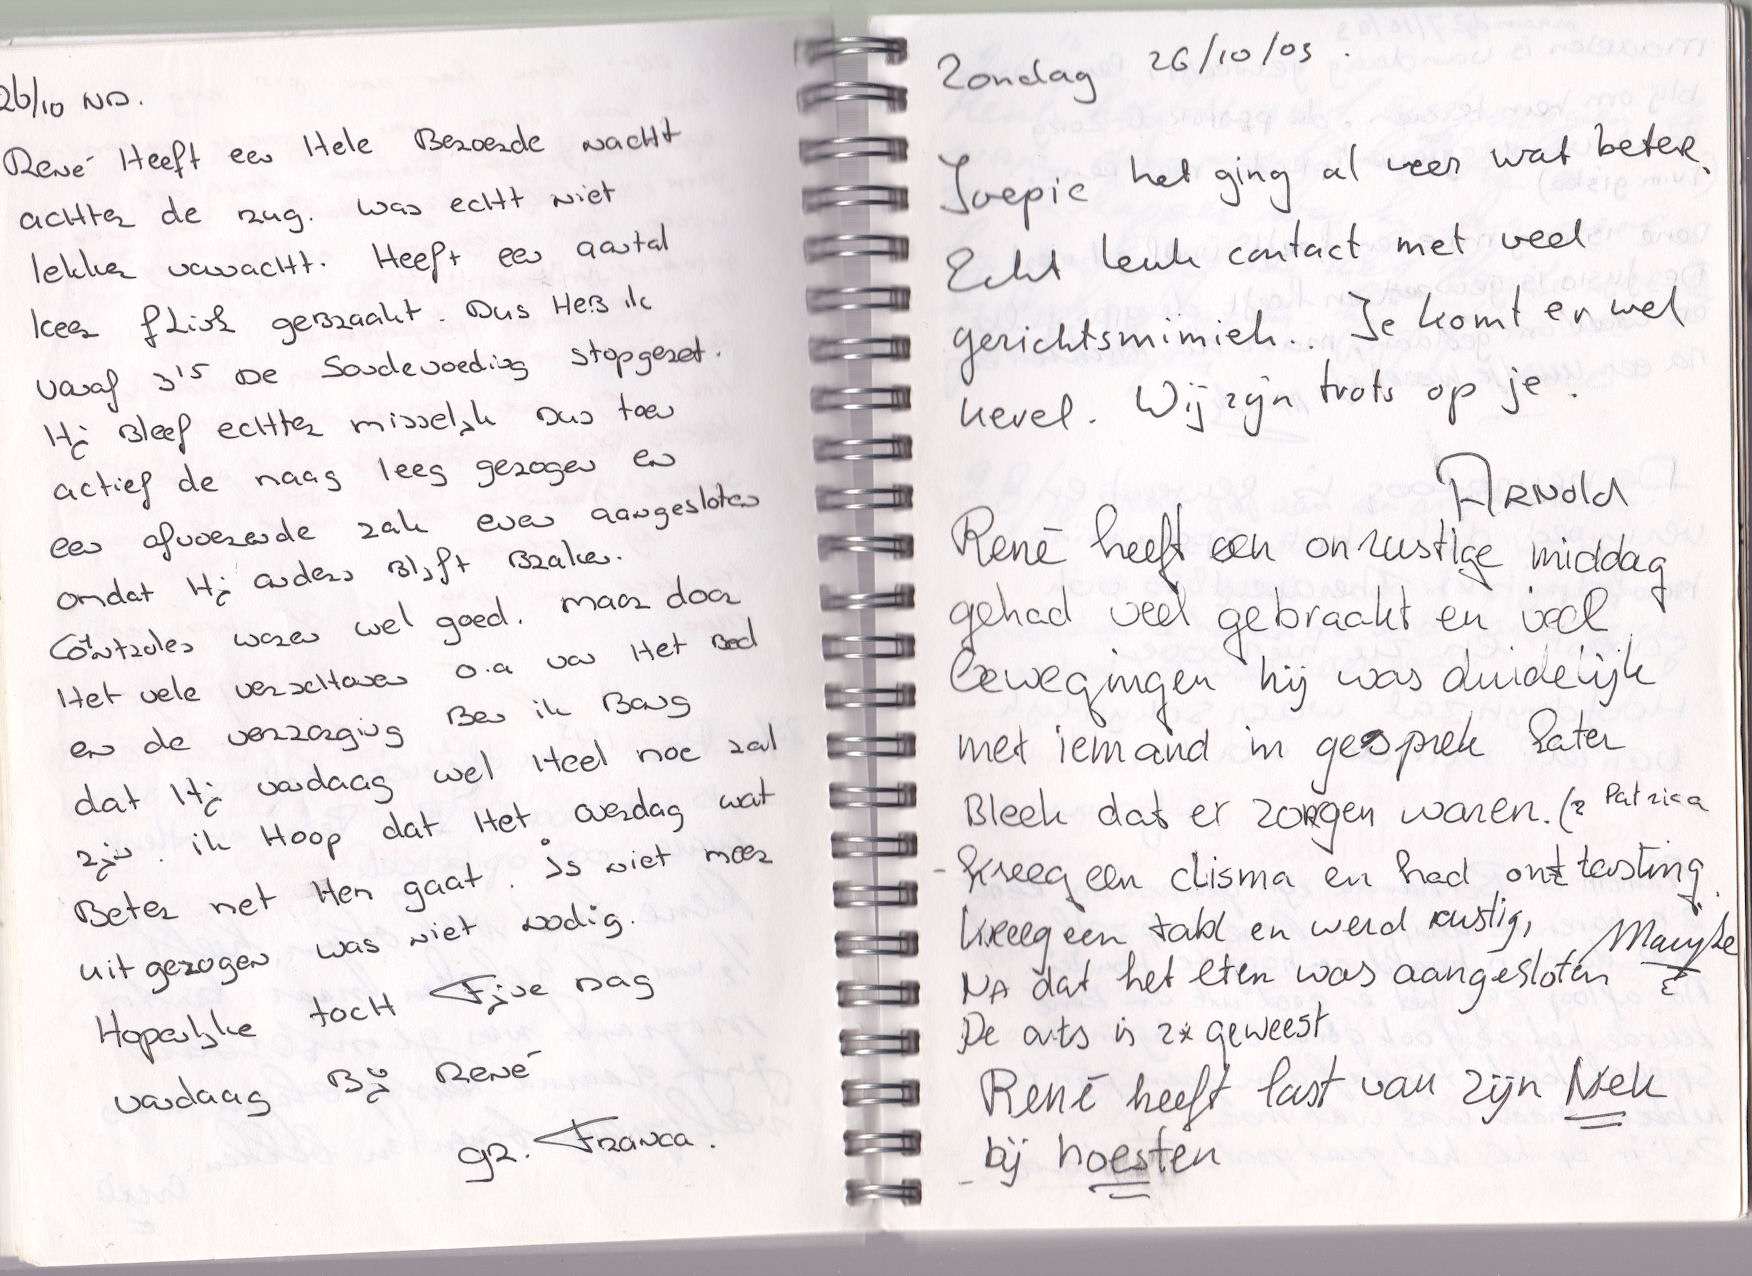 26/10 ND.
René Heeft een Hele Beroerde nacht
achter de rug. was echt niet
lekker vannacht. Heeft een aantal
keer flink gebraakt. Dus HeB ik
vanaf 3¹⁵ De Sondevoeding stopgezet.
Hij Bleef echter misselijk Dus toen
actief de maag leeg gezogen en
een afvoerende zak even aangesloten
omdat Hij anders Blijft Braken.
Controles waren wel goed. maar door
Het vele verschonen o.a van Het Bed
en de verzorging Ben ik Bang
dat Hij vandaag wel Heel moe zal
zijn. ik Hoop dat Het overdag wat
Beter met Hem gaat. is niet meer
uitgezogen was niet nodig.
Hopenlijke toch Fijne Dag
vandaag Bij René
gr. Franca.
Zondag 26/10/03.
Joepie het ging al weer wat beter.
Echt leuk contact met veel
gezichtsmimiek.. Je komt er wel
kerel. Wij zijn trots op je.
Arnold
René heeft een onrustige middag
gehad veel gebraakt en veel
bewegingen hij was duidelijk
met iemand in gesprek later
Bleek dat er zorgen waren. (? Patrica
- kreeg een clisma en had ontlasting.
kreeg een tabl en werd rustig,
NA dat het eten was aangesloten
Maryke
De arts is 2x geweest
René heeft last van zijn Nek
- bij hoesten